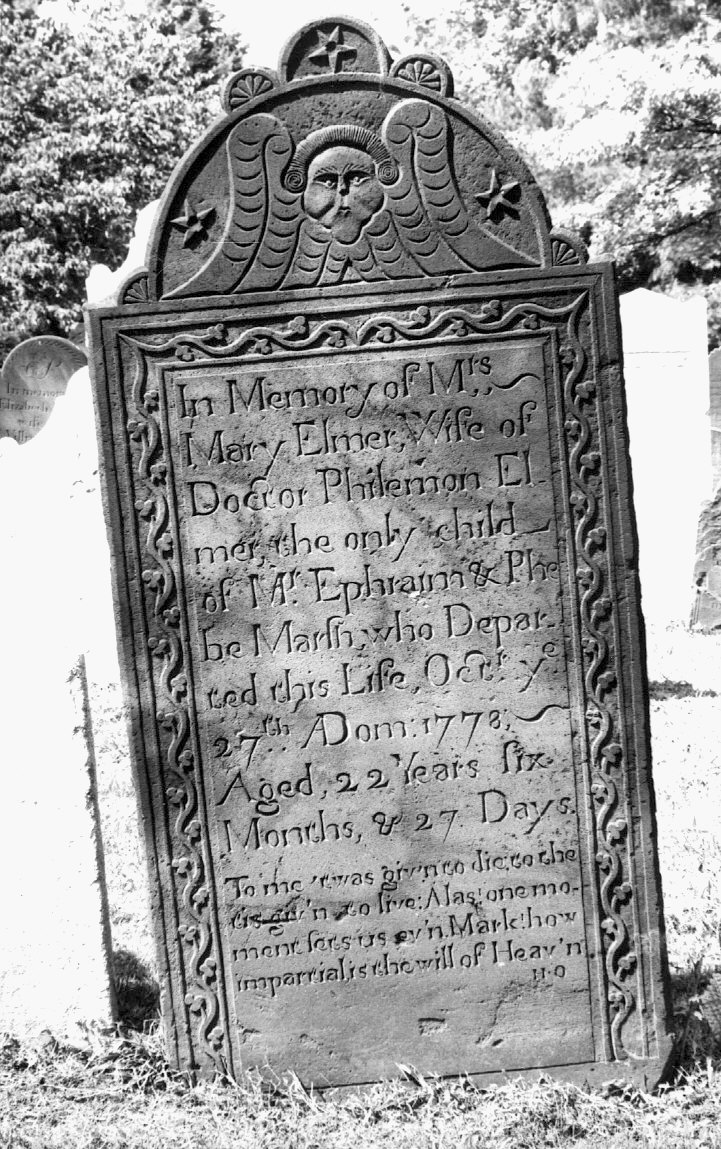 In Memory of Mrs
Mary Elmer, Wife of
Doctor Philemon El-
mer, the only child
of Mr. Ephraim & Phe
be Marſh, who Depar-
ted this Life, Oct. ye
27th.. A Dom: 1778,
Aged, 22 Years ſix
Months, & 27 Days.
To me 'twas giv'n to die: to thee
'tis giv'n to live: Alas! one mo-
ment ſets us ev'n. Mark! how
impartial, is the will of Heav'n
In memory
Elizabeth